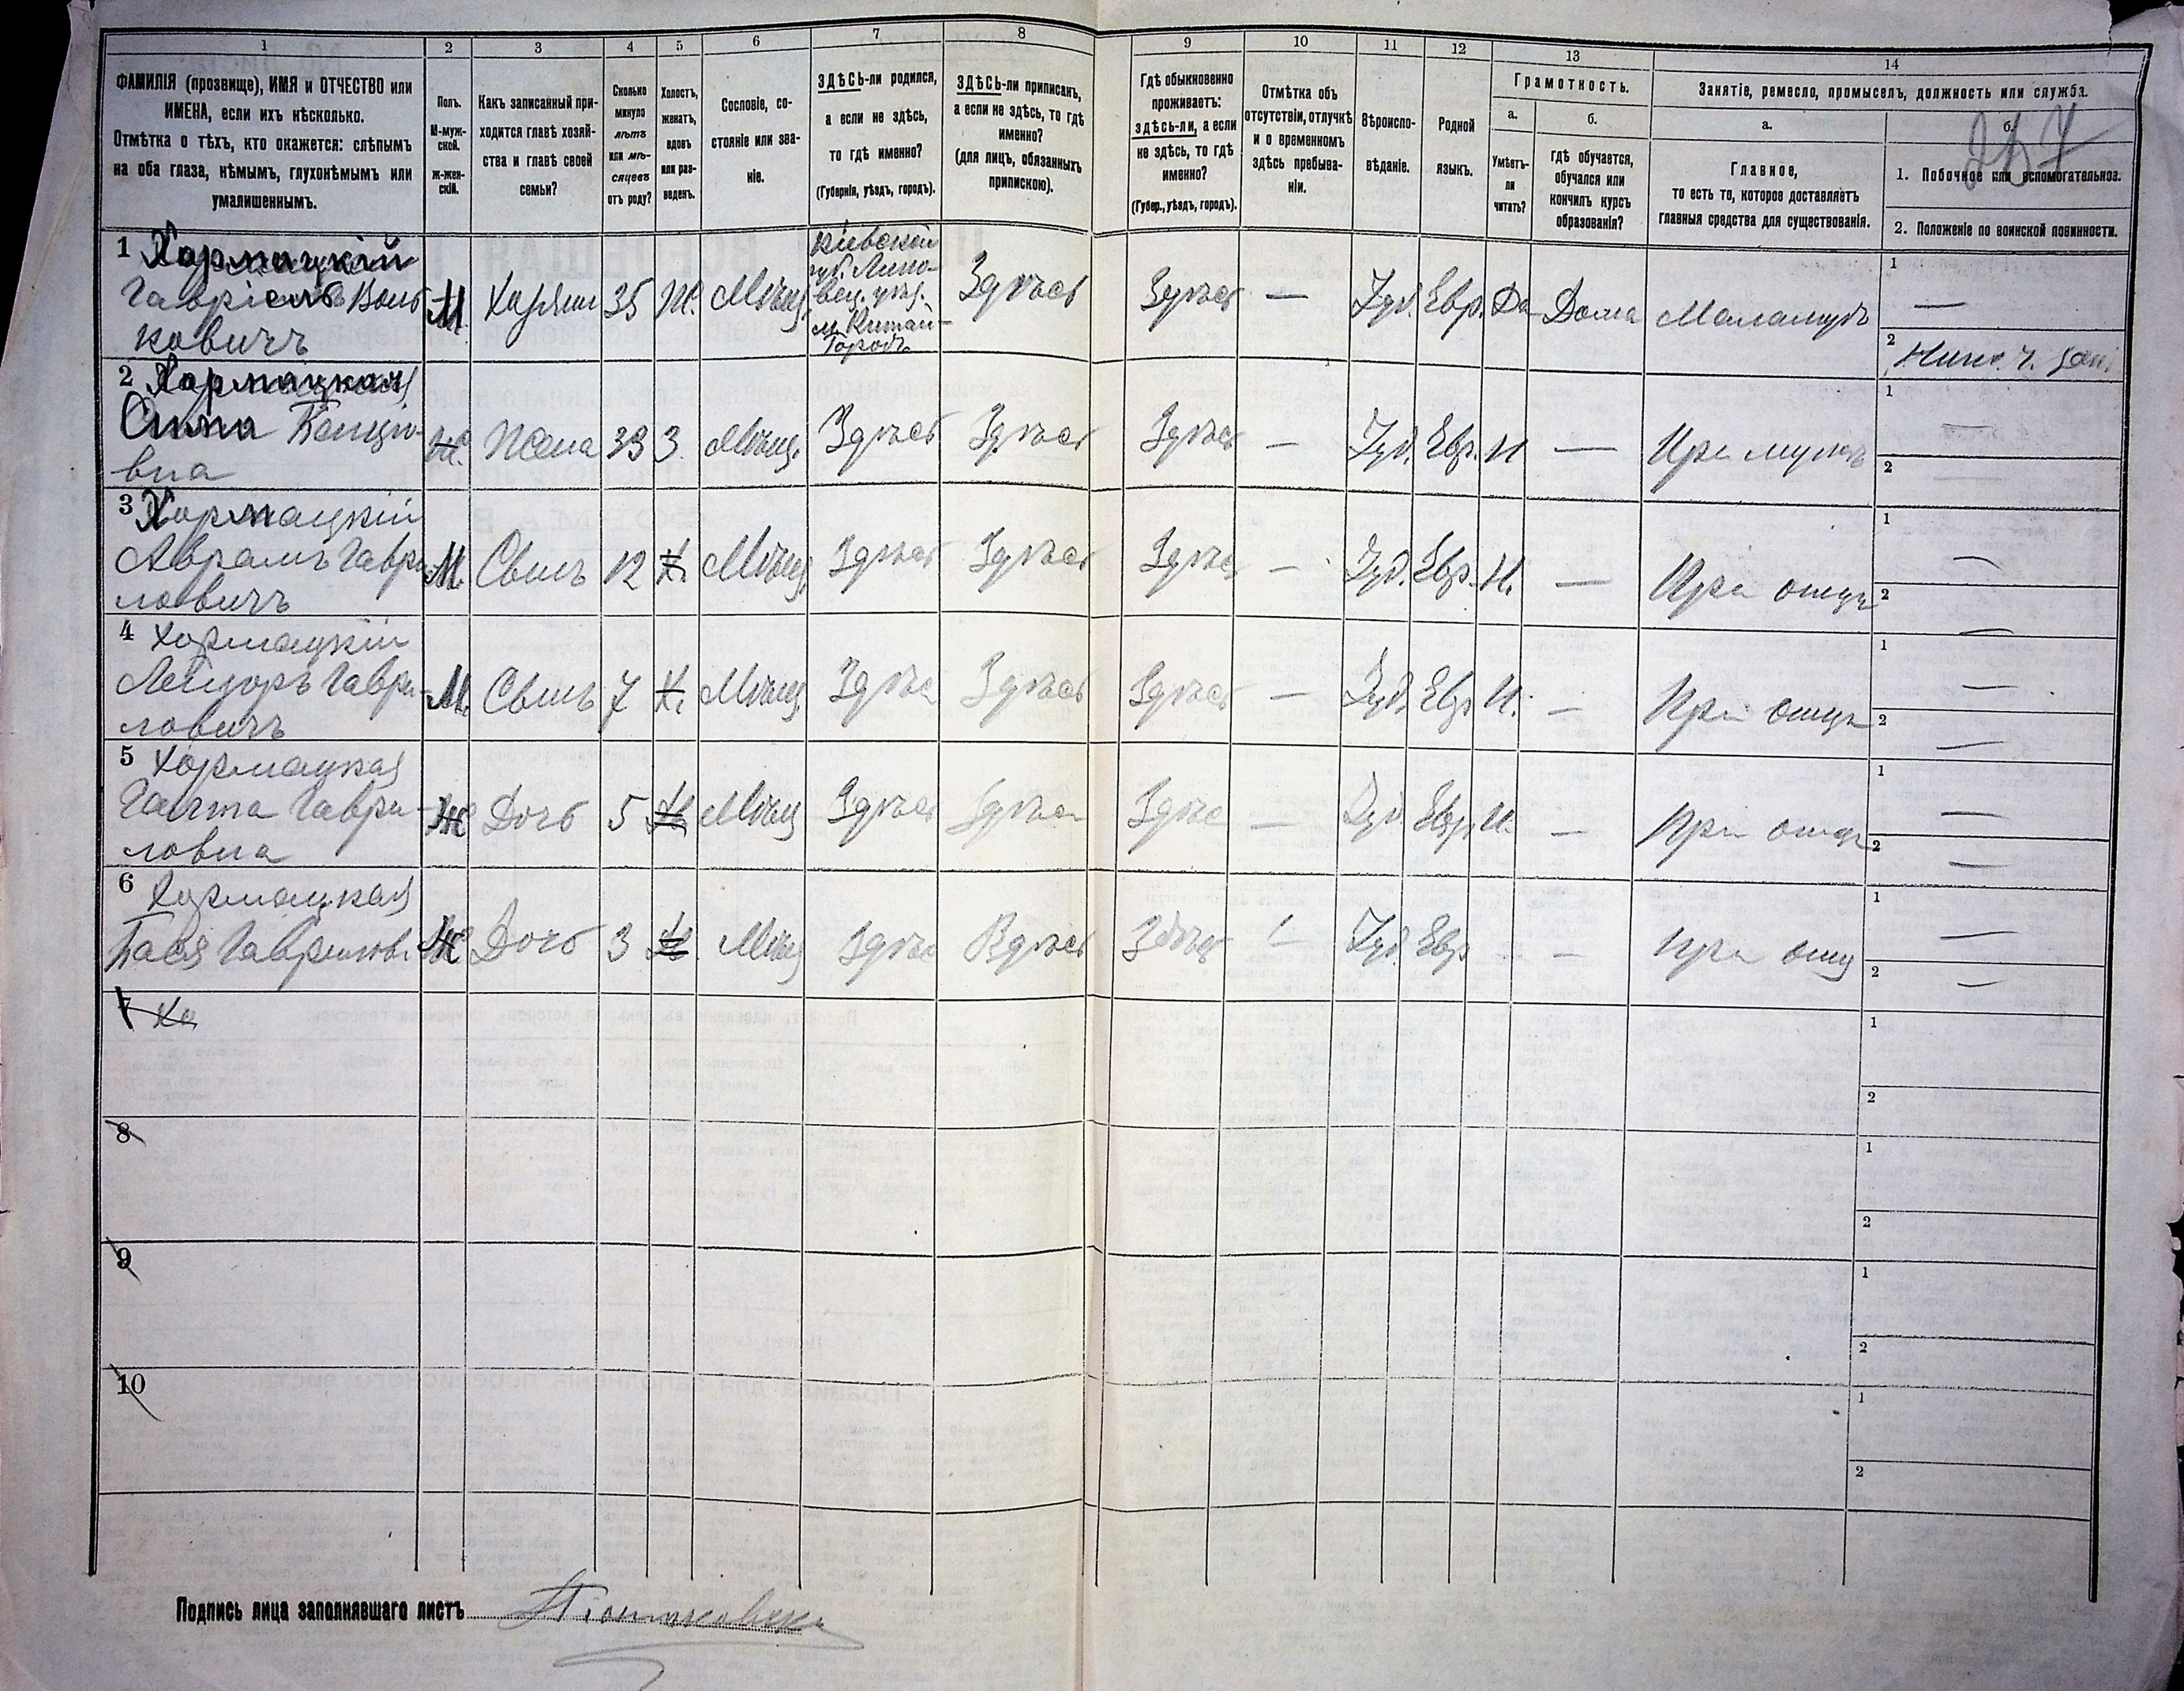 1 2 3 4 5 6 7 8 9 10 11 12 13 14
ФАМИЛІЯ (прозвище), ИМЯ и ОТЧЕСТВО или
ИМЕНА, если ихъ нѣсколько.
Отмѣтка о тѣхъ, кто окажется: слѣпымъ
на оба глаза, нѣмымъ, глухонѣмымъ или
умалишеннымъ.
Полъ.
М-муж-
ской.
Ж-жен-
скій.
Какъ записанный при-
ходится главѣ хозяй-
ства и главѣ своей
семьи?
Сколько
минуло
лѣтъ
или мѣ-
сяцевъ
отъ роду?
Холостъ,
женатъ,
вдовъ
или раз-
веденъ.
Сословіе, со-
стояніе или зва-
ніе.
ЗДѢСЬ-ли родился,
а если не здѣсь,
то гдѣ именно?
(Губернія, уѣздъ, городъ).
ЗДѢСЬ-ли приписанъ,
а если не здѣсь, то гдѣ
именно?
(для лицъ, обязанныхъ
припискою).
Гдѣ обыкновенно
проживаетъ:
здѣсь-ли, а если
не здѣсь, то гдѣ
именно?
(Губер., уѣздъ, городъ).
Отмѣтка объ
отсутствіи, отлучкѣ
и о временномъ
здѣсь пребыва-
ніи.
Вѣроиспо-
вѣданіе.
Родной
языкъ.
Грамотность.
а.
Умѣетъ-
ли
читать?
б.
гдѣ обучается,
обучался или
кончилъ курсъ
образованія?
Занятіе, ремесло, промыселъ, должность или служба.
а.
Главное,
то есть то, которое доставляетъ
главныя средства для существованія.
б.
1. Побочное или вспомогательное.
2. Положеніе по воинской повинности.
1 Хармацкій
Гавріель Воль
ковичъ
М. Хозяин 35 Ж. Мѣщ.
Кіевской
губ. Липо-
вец. уѣз.
м. Китай-
Городъ
Здѣсь Здѣсь — Іуд. Евр. Да Дома Меламудъ
1 —
2
2 Хармацкая
Бенціо-
вна
Ж. Жена 33 З. Мѣщ. Здѣсь Здѣсь Здѣсь — Іуд. Евр. Н — При мужѣ
1 —
2 —
3 Хармацкій
Аврамъ Гаври
ловичъ
М. Сынъ 12 Х. Мѣщ. Здѣсь Здѣсь Здѣсь — Іуд. Евр. Н. — При отцѣ
1 —
2 —
4 Хармацкій
Лейзоръ Гаври-
ловичъ
М. Сынъ 7 Х. Мѣщ. Здѣсь Здѣсь Здѣсь — Іуд. Евр Н. — При отцѣ
1 —
2 —
5 Хармацкая
Гаври-
ловна
Ж Дочь 5 Мѣщ Здѣсь Здѣсь Здѣсь — Іуд. Евр. Н. — При отцѣ
1 —
2 —
6 Хармацкая
Бася Гаврилов.
Ж Дочь 3 Мѣщ Здѣсь Здѣсь Здѣсь — Іуд. Евр — При отц
1 —
2 —
7 Ха
1
2
8
1
2
9
1
2
10
1
2
Подпись лица заполнявшаго листъ